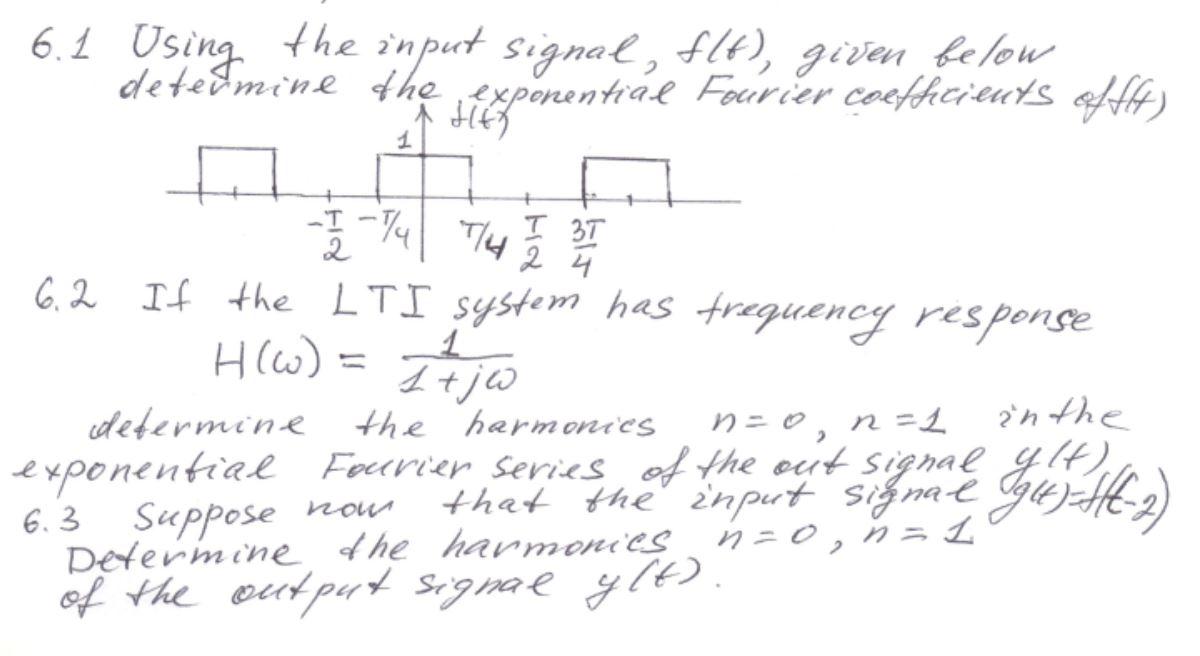 6.1 Using the input signal, f(t), given below
determine the exponential Fourier coefficients of f(t)
f(t)
1
-T/2 -T/4 T/4 T/2 3T/4
6.2 If the LTI system has frequency response
H(ω) = 1/(1+jω)
determine the harmonics n=0, n=1 in the
exponential Fourier series of the out signal y(t)
6.3 Suppose now that the input signal g(t)=f(t-2)
Determine the harmonics n=0, n=1
of the output signal y(t).